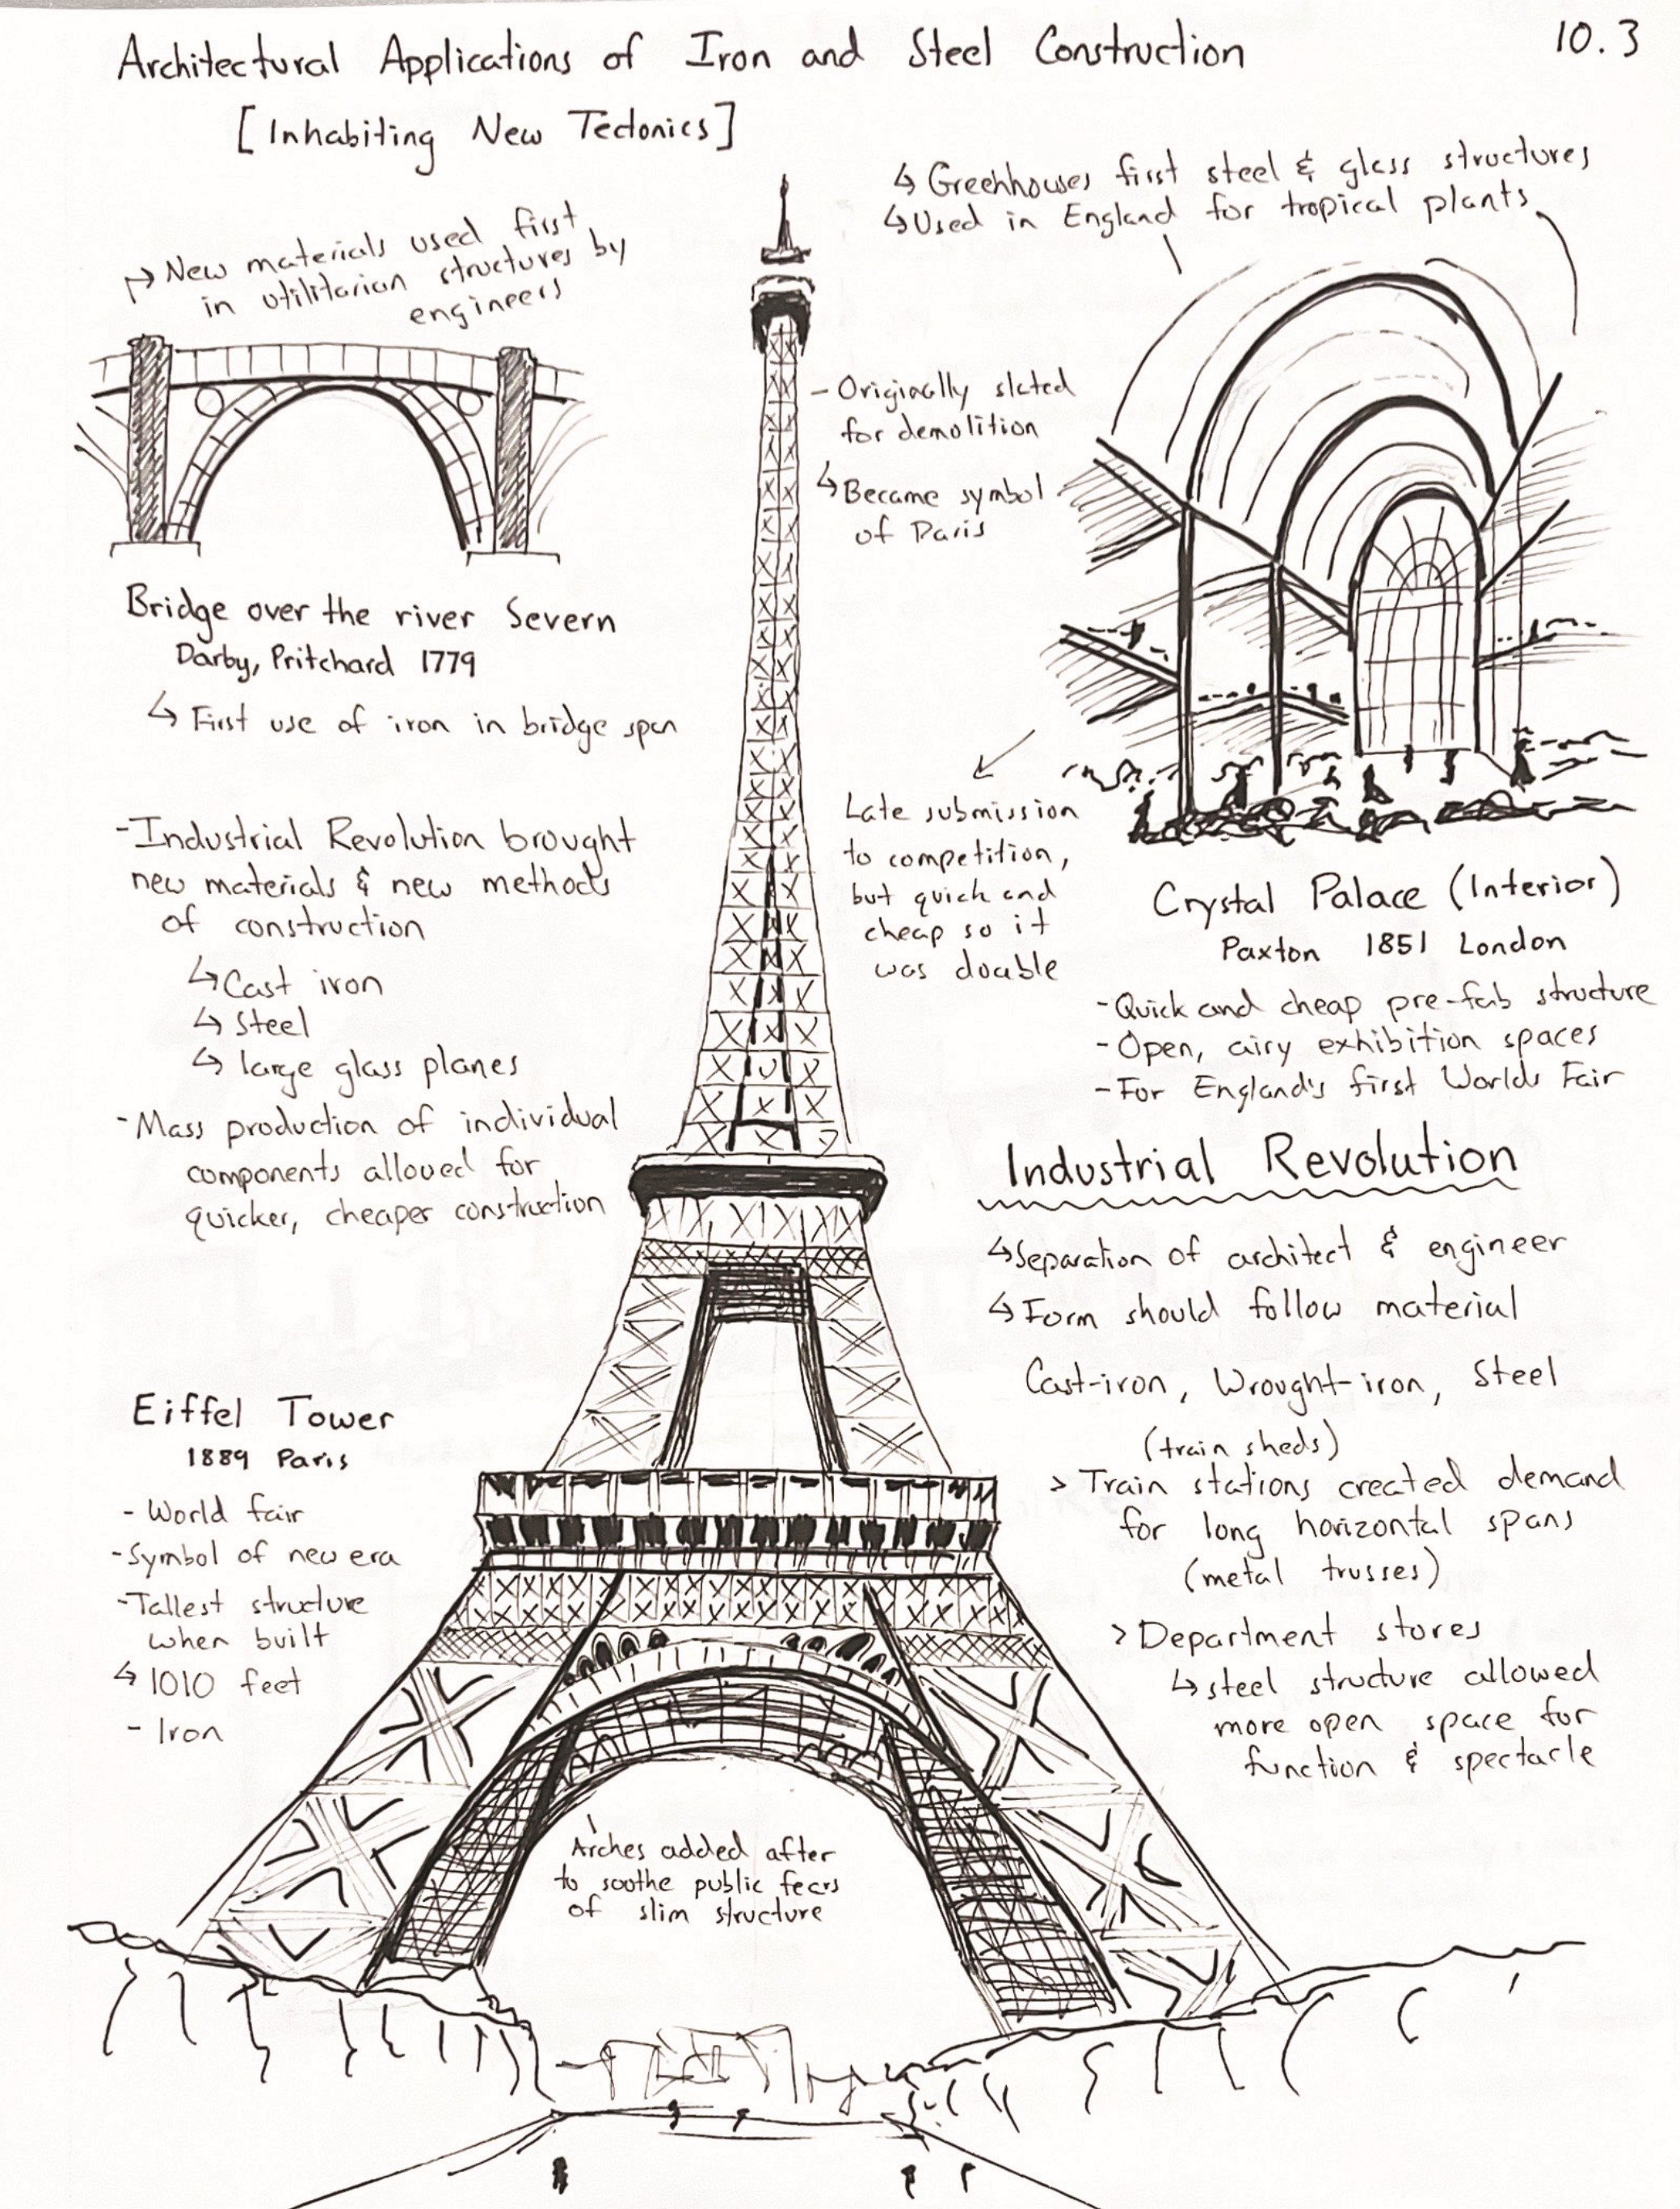 Architectural Applications of Iron and Steel Construction
10.3
[Inhabiting New Tectonics]
↳ Greenhouses first steel & glass structures
↳ Used in England for tropical plants
↳ New materials used first
in utilitarian structures by
engineers
- Originally slated
for demolition
↳ Became symbol
of Paris
Bridge over the river Severn
Darby, Pritchard 1779
↳ First use of iron in bridge span
Late submission
to competition,
but quick and
cheap so it
was doable
Crystal Palace (Interior)
Paxton 1851 London
- Quick and cheap pre-fab structure
- Open, airy exhibition spaces
- For England's first Worlds Fair
- Industrial Revolution brought
new materials & new methods
of construction
↳ Cast iron
↳ Steel
↳ large glass planes
- Mass production of individual
components allowed for
quicker, cheaper construction
Industrial Revolution
↳ Separation of architect & engineer
↳ Form should follow material
Cast-iron, Wrought-iron, Steel
(train sheds)
> Train stations created demand
for long horizontal spans
(metal trusses)
> Department stores
↳ steel structure allowed
more open space for
function & spectacle
Eiffel Tower
1889 Paris
- World fair
- Symbol of new era
- Tallest structure
when built
↳ 1010 feet
- Iron
Arches added after
to soothe public fears
of slim structure